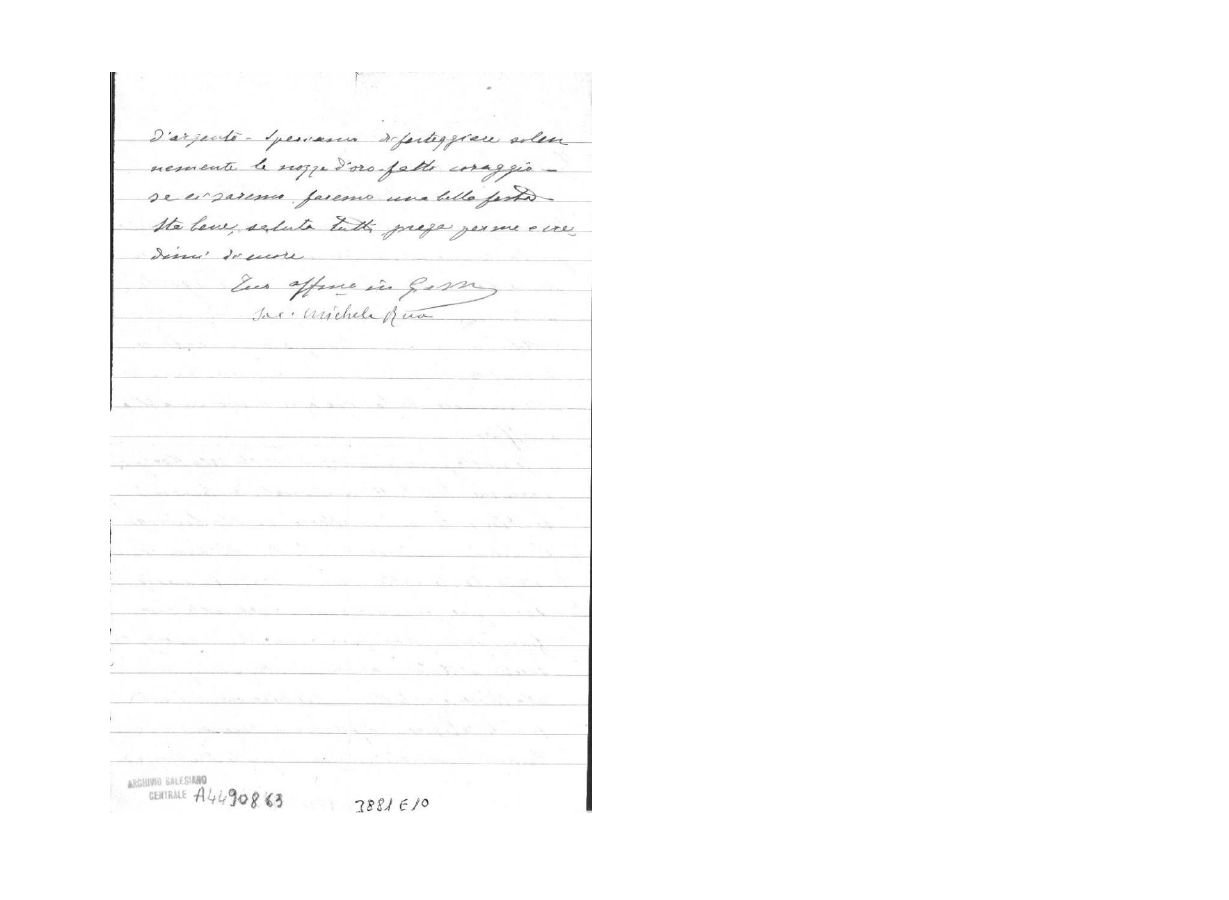 d'argento - Speriamo di festeggiare solen
nemente le nozze d'oro - fatti coraggio -
se ci saremo faremo una bella festa -
Sta bene, saluta tutti, prega per me e cre,
dimi di cuore
Tuo affmo in G. e M.
Sac. Michele Rua
ARCHIVIO SALESIANO
CENTRALE A4490863
3881 E 10